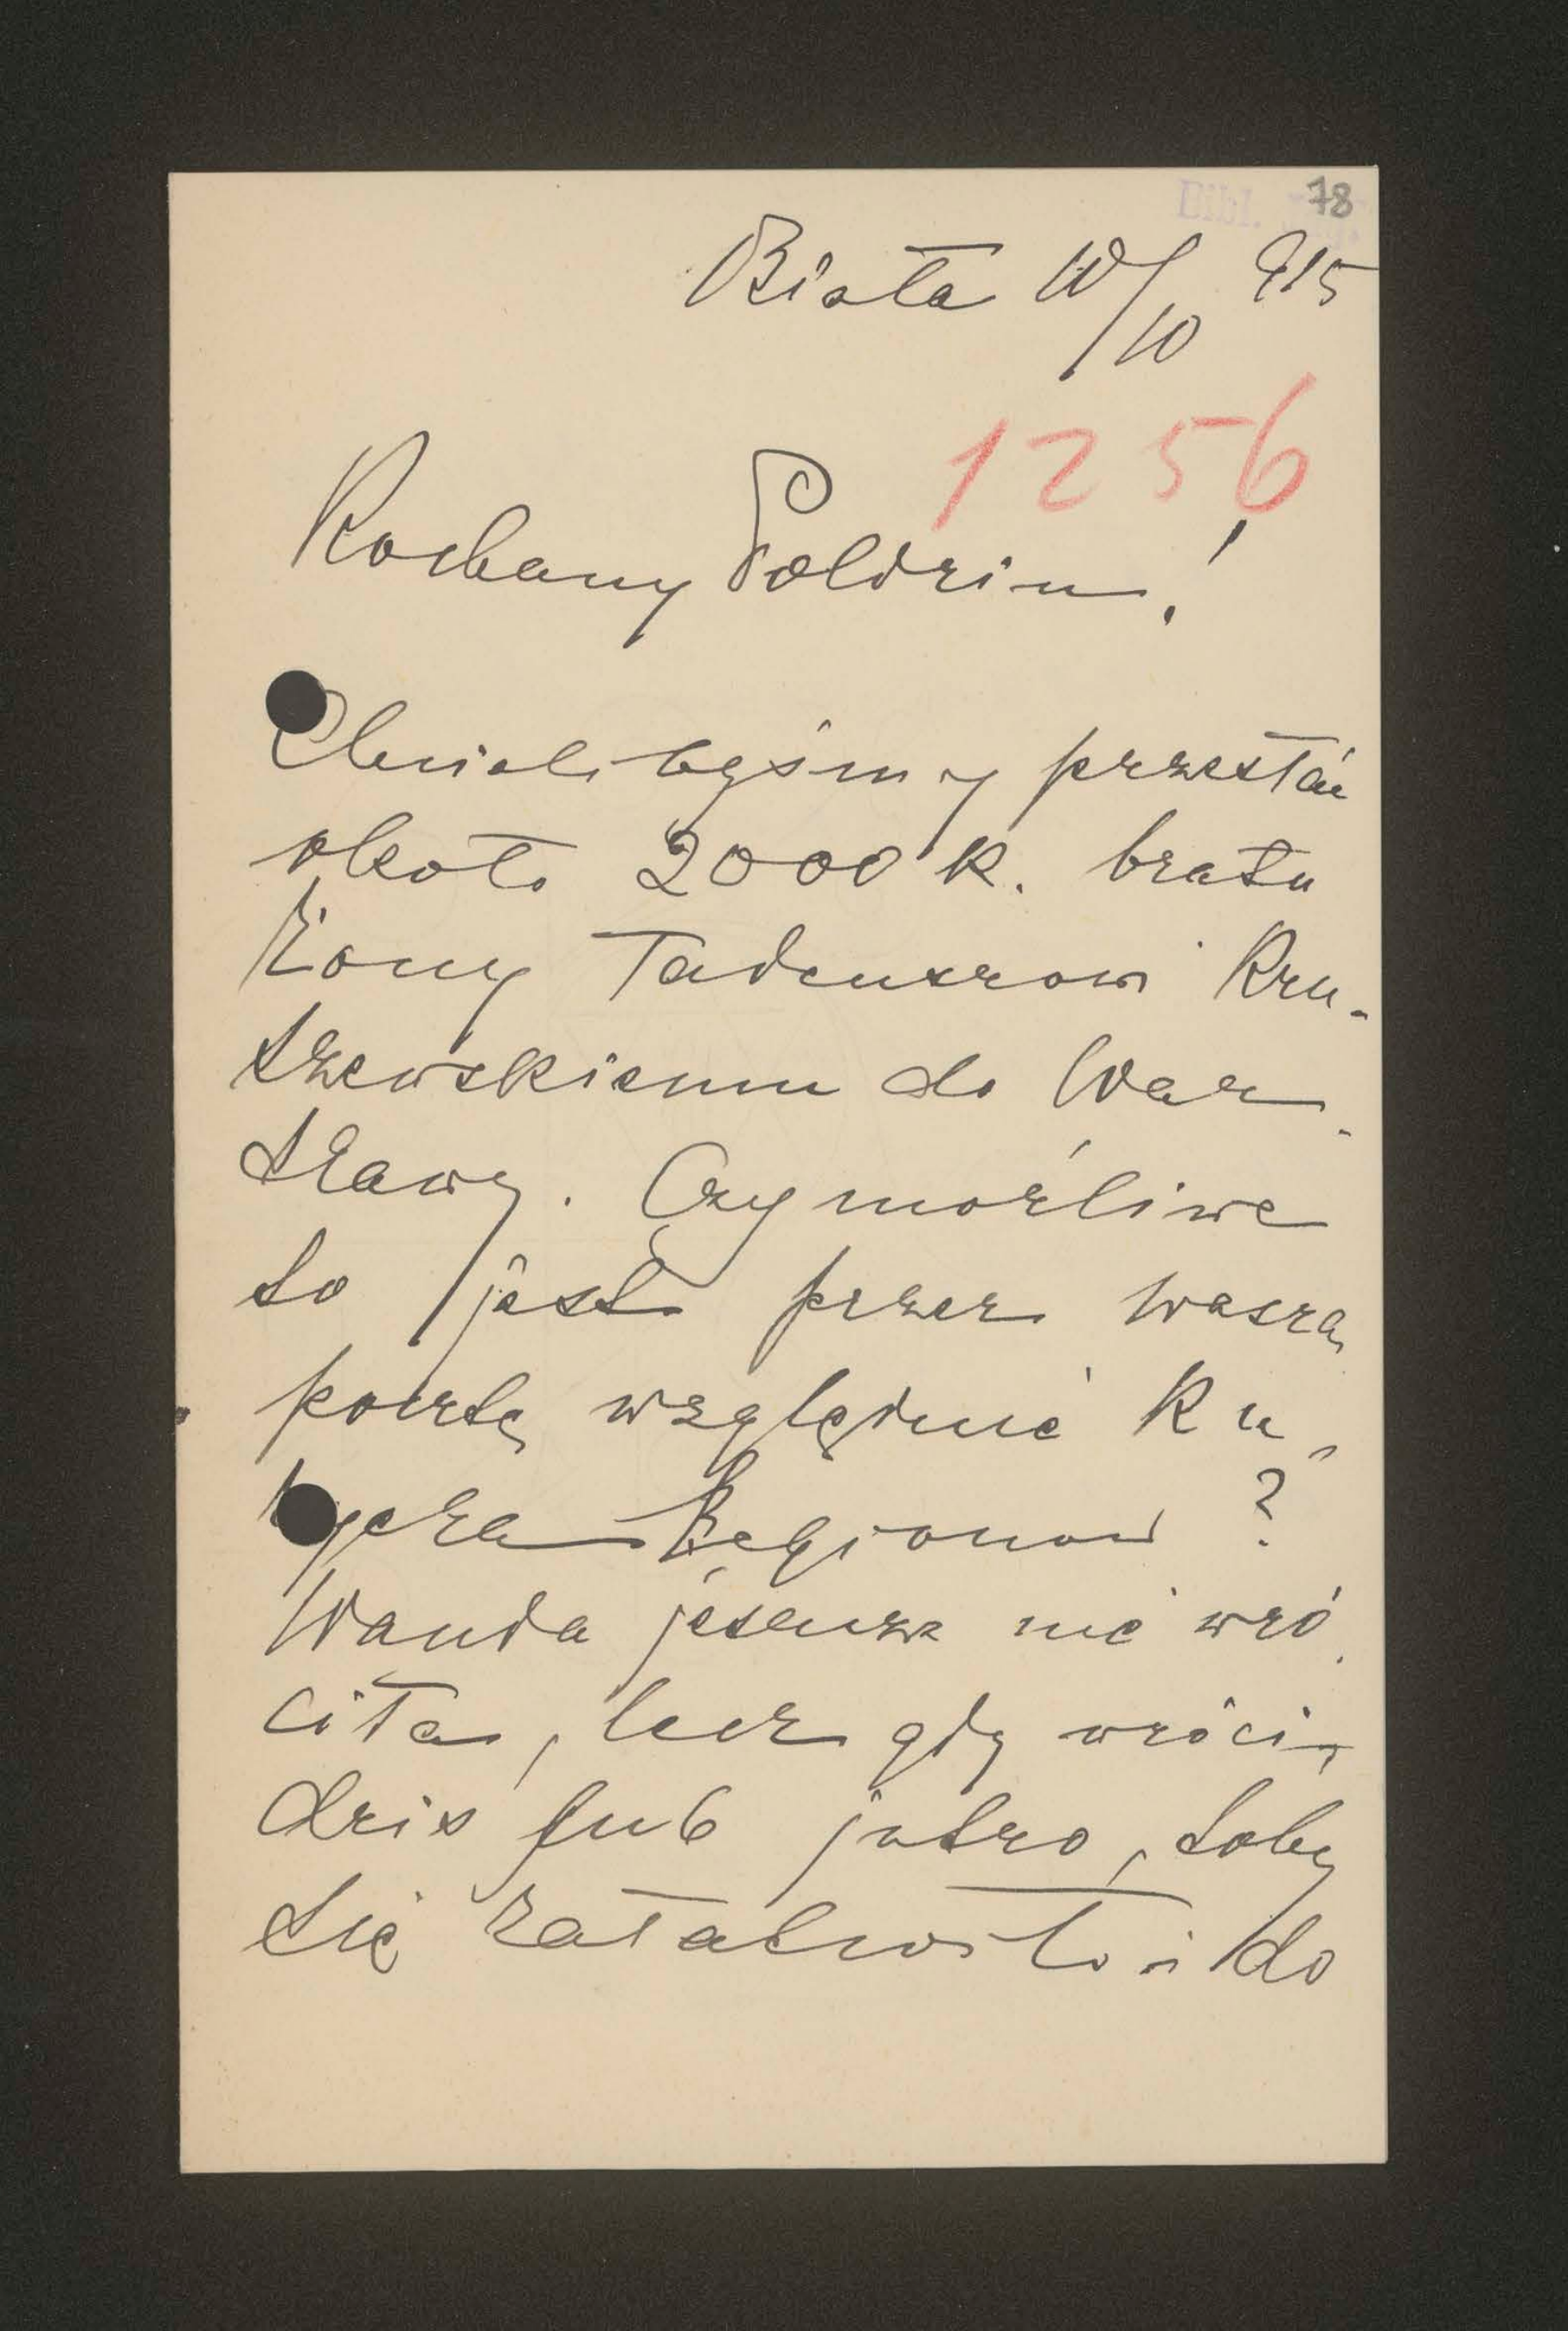 Bibl. Jag.
78
Biała 10/10 915
1256
Kochany Poldziu!
Chcielibyśmy przesłać
około 2000 K. bratu
żony Tadeuszowi Kru-
szewskiemu do War-
szawy. Czy możliwe
to jest przez waszą
pocztę względnie Ku-
ryera Legionów ?
Wanda jeszcze nie wró-
ciła, lecz gdy wróci,
dziś lub jutro, toby
się załatwiło i do